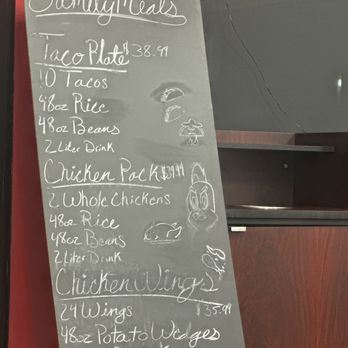 Family Meals
Taco Plate $38.99
10 Tacos
48oz Rice
48oz Beans
2 Liter Drink
Chicken Pack
2 Whole Chickens
48oz Rice
48oz Beans
2 Liter Drink
Chicken Wings
24 Wings $35.99
48oz Potato Wedges